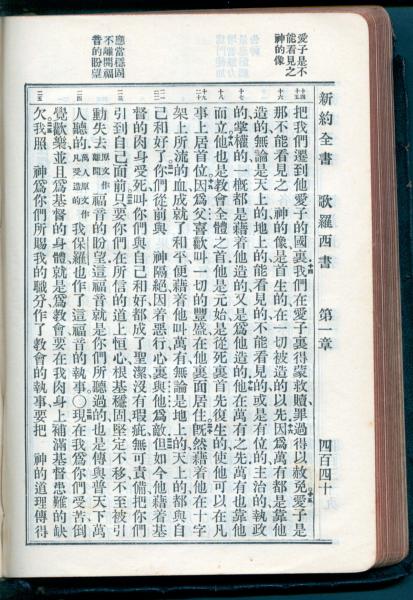 新約全書 歌羅西書 第一章 四百四十
愛子是不
能看見之
神的像
應當穩固
不離開福
音的盼望
十四 十五
把我們遷到他愛子的國裏我們在愛子裏得蒙救贖罪過得以赦免愛子是
十六
那不能看見之 神的像是首生的在一切被造的以先因爲萬有都是靠他
造的無論是天上的地上的能看見的不能看見的或是有位的主治的執政
十七
的掌權的一概都是藉着他造的又是爲他造的他在萬有之先萬有也靠他
十八
而立他也是教會全體之首他是元始是從死裏首先復生的使他可以在凡
十九 二十
事上居首位因爲父喜歡叫一切的豐盛在他裏面居住旣然藉着他在十字
架上所流的血成就了和平便藉着他叫萬有無論是地上的天上的都與自
二一
己和好了你們從前與 神隔絕因着惡行心裏與他爲敵但如今他藉着基
二二
督的肉身受死叫你們與自己和好都成了聖潔沒有瑕疵無可責備把你們
二三
引到自己面前只要你們在所信的道上恒心根基穩固堅定不移不至被引
動失去原文作離開福音的盼望這福音就是你們所聽過的也是傳與普天下萬
二四
人聽的萬人原文作凡受造的我保羅也作了這福音的執事○現在我爲你們受苦倒
覺歡樂並且爲基督的身體就是爲教會要在我肉身上補滿基督患難的缺
二五
欠我照 神爲你們所賜我的職分作了教會的執事要把 神的道理傳得